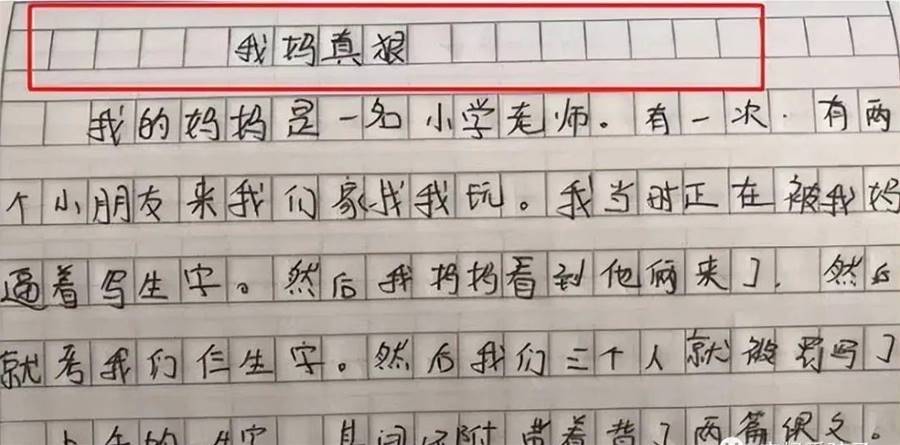 我妈真狠
我的妈妈是一名小学老师。有一次，有两
个小朋友来我们家找我玩。我当时正在被我妈
逼着写生字。然后我妈妈看到他俩来了，然后
就考我们仨生字。然后我们三个人就被罚写了
上午的生字，其间还附带着背了两篇课文。